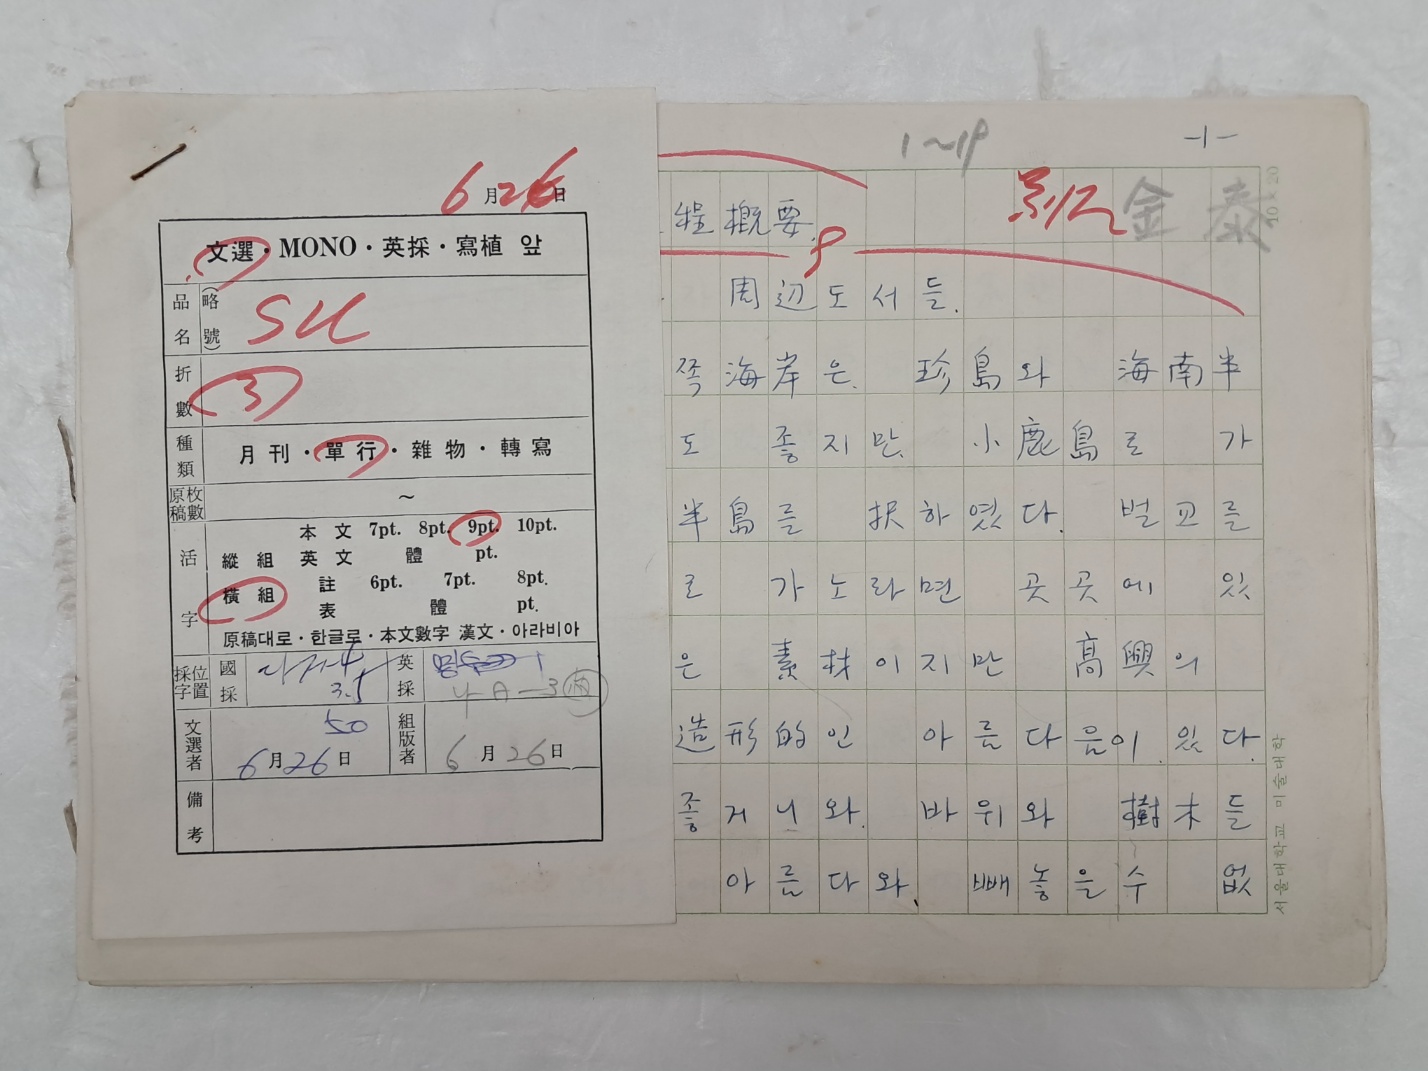 6月26日
文選・MONO・英採・寫植 앞
品名 (略號) SU
折數 3
種類 月刊・單行・雜物・轉寫
原稿枚數 ~
活字
本文 7pt. 8pt. 9pt. 10pt.
縱組 英文 體 pt.
橫組 註 6pt. 7pt. 8pt.
表 體 pt.
原稿대로・한글로・本文數字 漢文・아라비아
採字位置 國採 3.5 英採 4A-3
文選者 50 6月26日 組版者 6月26日
備考
1~19 -1-
金泰
程概要
周辺도서들.
쪽 海岸은 珍島와 海南半
도 좋지만 小鹿島로 가
半島를 択하였다. 벌교를
로 가노라면 곳곳에 있
은 素材이지만 高興의
造形的인 아름다음이 있다.
좋거니와 바위와 樹木들
아름다와, 빼놓을수 없
10×20
서울대학교 미술대학